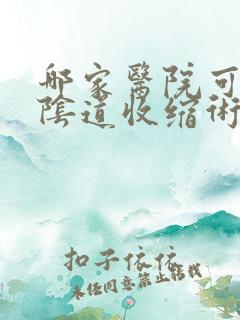 哪家醫院可
陰道收缩術
扣子依依
未经同意禁止转载